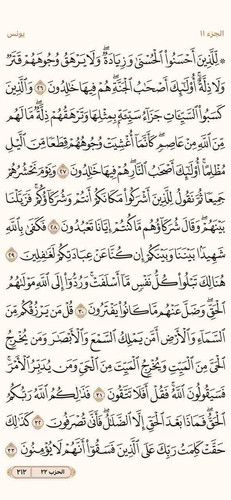 الجزء ١١ يونس
۞ لِّلَّذِينَ أَحْسَنُوا۟ ٱلْحُسْنَىٰ وَزِيَادَةٌ ۖ وَلَا يَرْهَقُ وُجُوهَهُمْ قَتَرٌ
وَلَا ذِلَّةٌ ۚ أُو۟لَـٰٓئِكَ أَصْحَـٰبُ ٱلْجَنَّةِ ۖ هُمْ فِيهَا خَـٰلِدُونَ ٢٦ وَٱلَّذِينَ
كَسَبُوا۟ ٱلسَّيِّـَٔاتِ جَزَآءُ سَيِّئَةٍۭ بِمِثْلِهَا وَتَرْهَقُهُمْ ذِلَّةٌ ۖ مَّا لَهُم
مِّنَ ٱللَّهِ مِنْ عَاصِمٍ ۖ كَأَنَّمَآ أُغْشِيَتْ وُجُوهُهُمْ قِطَعًا مِّنَ ٱلَّيْلِ
مُظْلِمًا ۚ أُو۟لَـٰٓئِكَ أَصْحَـٰبُ ٱلنَّارِ ۖ هُمْ فِيهَا خَـٰلِدُونَ ٢٧ وَيَوْمَ نَحْشُرُهُمْ
جَمِيعًا ثُمَّ نَقُولُ لِلَّذِينَ أَشْرَكُوا۟ مَكَانَكُمْ أَنتُمْ وَشُرَكَآؤُكُمْ ۚ فَزَيَّلْنَا
بَيْنَهُمْ ۖ وَقَالَ شُرَكَآؤُهُم مَّا كُنتُمْ إِيَّانَا تَعْبُدُونَ ٢٨ فَكَفَىٰ بِٱللَّهِ
شَهِيدًۢا بَيْنَنَا وَبَيْنَكُمْ إِن كُنَّا عَنْ عِبَادَتِكُمْ لَغَـٰفِلِينَ ٢٩
هُنَالِكَ تَبْلُوا۟ كُلُّ نَفْسٍ مَّآ أَسْلَفَتْ ۚ وَرُدُّوٓا۟ إِلَى ٱللَّهِ مَوْلَىٰهُمُ
ٱلْحَقِّ ۖ وَضَلَّ عَنْهُم مَّا كَانُوا۟ يَفْتَرُونَ ٣٠ قُلْ مَن يَرْزُقُكُم مِّنَ
ٱلسَّمَآءِ وَٱلْأَرْضِ أَمَّن يَمْلِكُ ٱلسَّمْعَ وَٱلْأَبْصَـٰرَ وَمَن يُخْرِجُ
ٱلْحَىَّ مِنَ ٱلْمَيِّتِ وَيُخْرِجُ ٱلْمَيِّتَ مِنَ ٱلْحَىِّ وَمَن يُدَبِّرُ ٱلْأَمْرَ ۚ
فَسَيَقُولُونَ ٱللَّهُ ۚ فَقُلْ أَفَلَا تَتَّقُونَ ٣١ فَذَٰلِكُمُ ٱللَّهُ رَبُّكُمُ
ٱلْحَقُّ ۖ فَمَاذَا بَعْدَ ٱلْحَقِّ إِلَّا ٱلضَّلَـٰلُ ۖ فَأَنَّىٰ تُصْرَفُونَ ٣٢ كَذَٰلِكَ
حَقَّتْ كَلِمَتُ رَبِّكَ عَلَى ٱلَّذِينَ فَسَقُوٓا۟ أَنَّهُمْ لَا يُؤْمِنُونَ ٣٣
الحزب ٢٢ ٢١٢